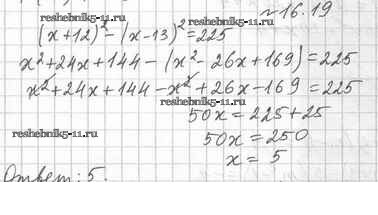 №16.19
reshebnik5-11.ru
(x+12)² - (x-13)² = 225
reshebnik5-11.ru
x²+24x+144-(x²-26x+169)=225
x²+24x+144-x²+26x-169=225
reshebnik5-11.ru
50x=225+25
reshebnik5-11.ru
50x=250
x=5
Ответ: 5.